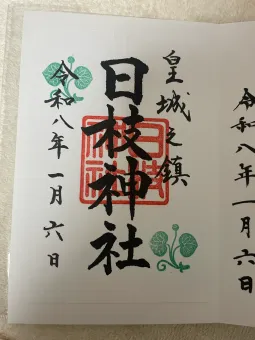 皇城之鎮
日枝神社
令和八年一月六日
令和八年一月六日